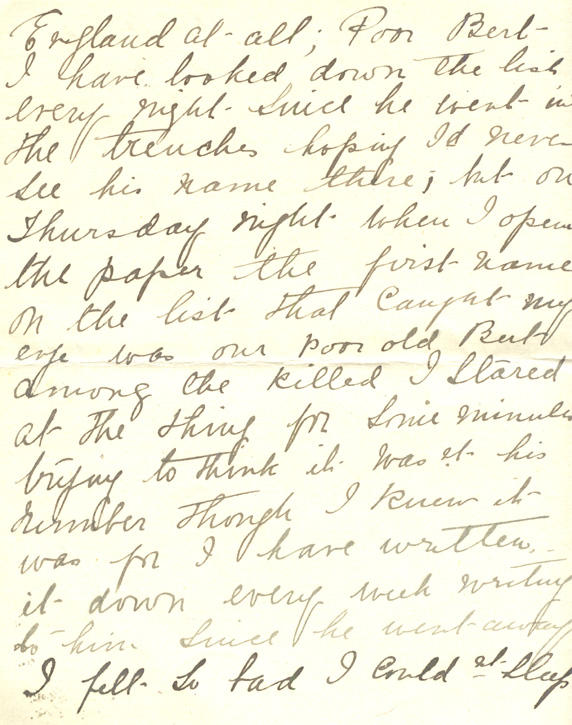 England at all; Poor Bert
I have looked down the list
every night since he went in
the trenches hoping I'd never
see his name there; but on
Thursday night when I open
the paper the first name
on the list that caught my
eye was our poor old Bert
among the killed I stared
at the thing for some minutes
trying to think it wasn't his
number though I knew it
was for I have written
it down every week writing
to him since he went away
I felt so bad I couldn't sleep